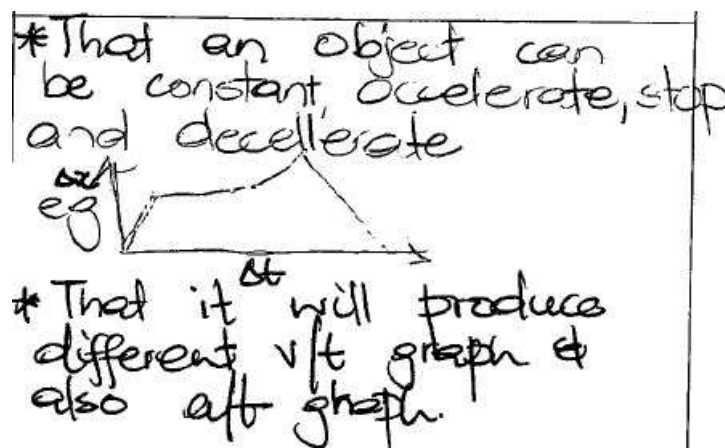 *That an object can
be constant, accelerate, stop
and decellerate
Δx
eg
Δt
*That it will produce
different v/t graph &
also a/t graph.